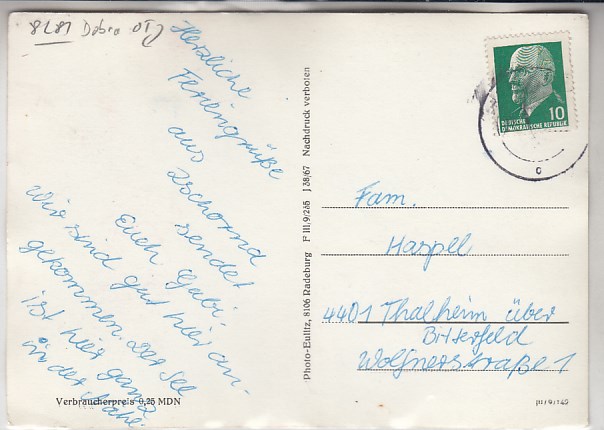 8281 Dobra OT
Herzliche
Feriengrüße
aus
Zschorna
sendet
Euch Gabi.
Wir sind gut hier an-
gekommen. Der See
ist hier ganz
in der Nähe.
Verbraucherpreis 0,25 MDN
Photo-Eulitz, 8106 Radeburg F III/9/285 J 38/67 Nachdruck verboten
DEUTSCHE
DEMOKRATISCHE REPUBLIK
10
Fam.
Harpll
4401 Thalheim über
Bitterfeld
Wolfnerstraße 1